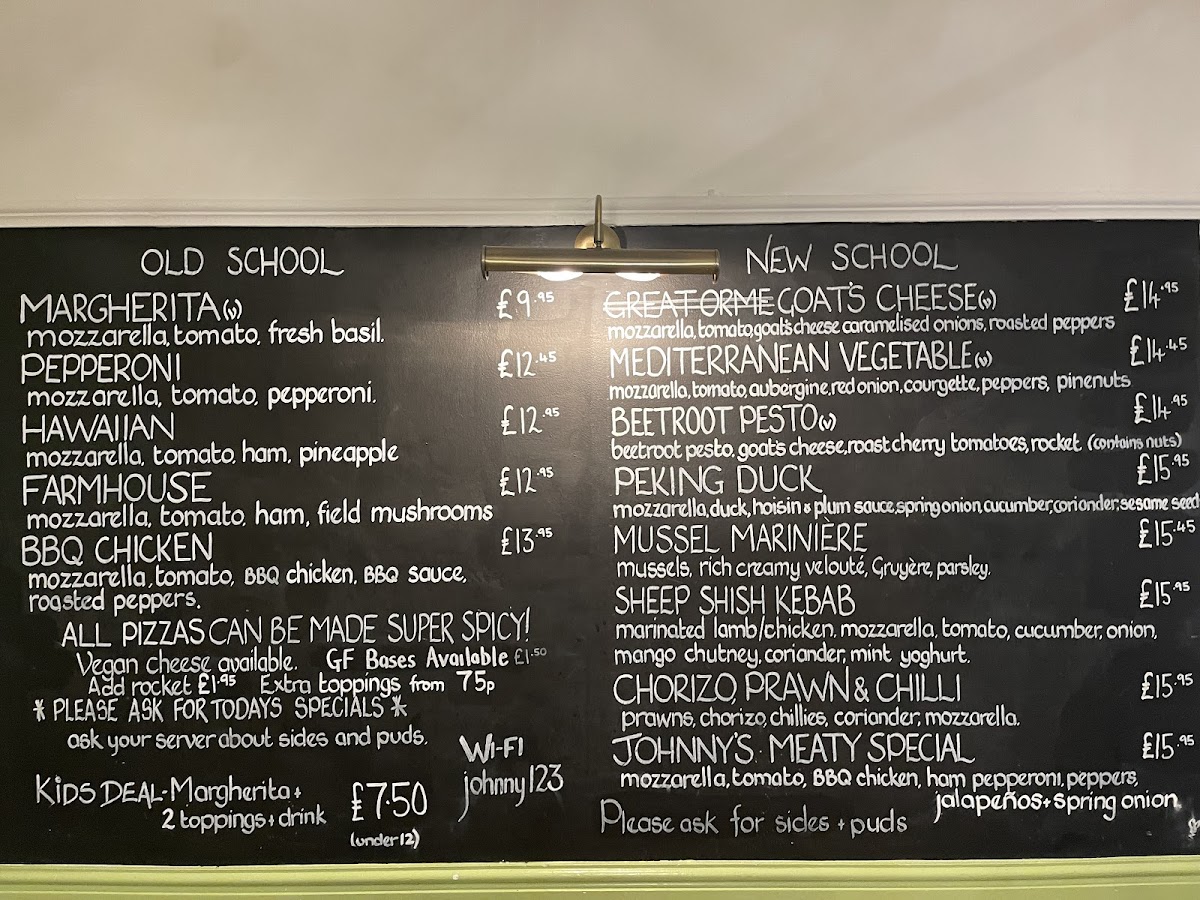 OLD SCHOOL
MARGHERITA(v) £9.95
mozzarella, tomato, fresh basil.
PEPPERONI £12.45
mozzarella, tomato, pepperoni.
HAWAIIAN £12.95
mozzarella, tomato, ham, pineapple
FARMHOUSE £12.95
mozzarella, tomato, ham, field mushrooms
BBQ CHICKEN £13.95
mozzarella, tomato, BBQ chicken, BBQ sauce,
roasted peppers.
ALL PIZZAS CAN BE MADE SUPER SPICY!
Vegan cheese available. GF Bases Available £1.50
Add rocket £1.95 Extra toppings from 75p
* PLEASE ASK FOR TODAYS SPECIALS *
ask your server about sides and puds.
KIDS DEAL - Margherita +
2 toppings + drink £7.50
(under 12)
WI-FI
johnny123
NEW SCHOOL
GREAT ORME GOAT'S CHEESE(v) £14.95
mozzarella, tomato, goat's cheese caramelised onions, roasted peppers
MEDITERRANEAN VEGETABLE(v) £14.45
mozzarella, tomato, aubergine, red onion, courgette, peppers, pinenuts
BEETROOT PESTO(v) £14.95
beetroot pesto, goat's cheese, roast cherry tomatoes, rocket. (contains nuts)
PEKING DUCK £15.95
mozzarella, duck, hoisin & plum sauce, spring onion, cucumber, coriander, sesame seed
MUSSEL MARINIÈRE £15.45
mussels, rich creamy velouté, Gruyère, parsley.
SHEEP SHISH KEBAB £15.95
marinated lamb/chicken, mozzarella, tomato, cucumber, onion,
mango chutney, coriander, mint yoghurt.
CHORIZO, PRAWN & CHILLI £15.95
prawns, chorizo, chillies, coriander, mozzarella.
JOHNNY'S MEATY SPECIAL £15.95
mozzarella, tomato, BBQ chicken, ham pepperoni, peppers,
jalapeños + spring onion
Please ask for sides + puds